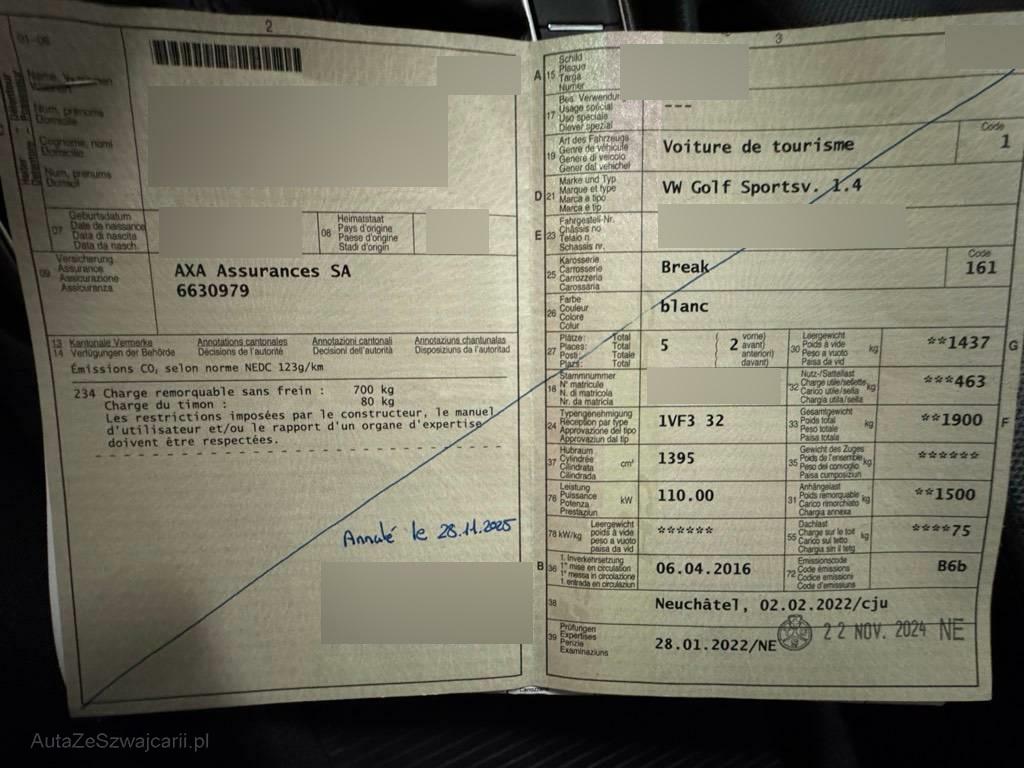 2
01-06
Name, Vornamen
Nom, prénoms
Domicile
Cognome, nomi
Domicilio
Num, prenums
Domicil
07
Geburtsdatum
Date de naissance
Data di nascita
Data da nasch.
08
Heimatstaat
Pays d'origine
Paese d'origine
Stadi d'origin
09
Versicherung
Assurance
Assicurazione
Assicuranza
AXA Assurances SA
6630979
13 Kantonale Vermerke Annotations cantonales Annotazioni cantonali Annotaziuns chantunalas
14 Verfügungen der Behörde Décisions de l'autorité Decisioni dell'autorità Disposiziuns da l'autoritad
Émissions CO₂ selon norme NEDC 123g/km
234 Charge remorquable sans frein : 700 kg
Charge du timon : 80 kg
Les restrictions imposées par le constructeur, le manuel
d'utilisateur et/ou le rapport d'un organe d'expertise
doivent être respectées.
Annulé le 28.11.2025
3
A 15
Schild
Plaque
Targa
Numer
17
Bes. Verwendung
Usage spécial
Uso speciale
Diever spezial
---
19
Art des Fahrzeugs
Genre de véhicule
Genere di veicolo
Gener dal vehichel
Voiture de tourisme
Code
1
D 21
Marke und Typ
Marque et type
Marca e tipo
Marca e tip
VW Golf Sportsv. 1.4
E 23
Fahrgestell-Nr.
Châssis no
Telaio n.
Schassis nr.
25
Karosserie
Carrosserie
Carrozzeria
Carossaria
Break
Code
161
26
Farbe
Couleur
Colore
Colur
blanc
27
Plätze: Total
Places: Total
Posti: Totale
Plazs: Total
5
2
vorne)
avant)
anteriori)
davant)
30
Leergewicht
Poids à vide
Peso a vuoto
Paisa da vid
kg
**1437
G
18
Stammnummer
N° matricule
N. di matricola
Nr. da matricla
32
Nutz-/Sattellast
Charge utile/sellette
Carico utile/sella
Chargia utila/sella
kg
***463
24
Typengenehmigung
Réception par type
Approvazione del tipo
Approvaziun dal tip
1VF3 32
33
Gesamtgewicht
Poids total
Peso totale
Paisa totala
kg
**1900
F
37
Hubraum
Cylindrée
Cilindrata
Cilindrada
cm³
1395
35
Gewicht des Zuges
Poids de l'ensemble
Peso del convoglio
Paisa cumposiziun
kg
******
76
Leistung
Puissance
Potenza
Prestaziun
kW
110.00
31
Anhängelast
Poids remorquable
Carico rimorchiato
Chargia annexa
kg
**1500
78 kW/kg
Leergewicht
poids à vide
peso a vuoto
paisa da vid
******
55
Dachlast
Charge sur le toit
Carico sul tetto
Chargia sin il tetg
kg
****75
B 36
1. Inverkehrsetzung
1re mise en circulation
1a messa in circolazione
1. entrada en circulaziun
06.04.2016
72
Emissionscode
Code émissions
Codice emissioni
Code d'emissiuns
B6b
38
Neuchâtel, 02.02.2022/cju
39
Prüfungen
Expertises
Perizie
Examinaziuns
28.01.2022/NE
22 NOV. 2024 NE
AutaZeSzwajcarii.pl